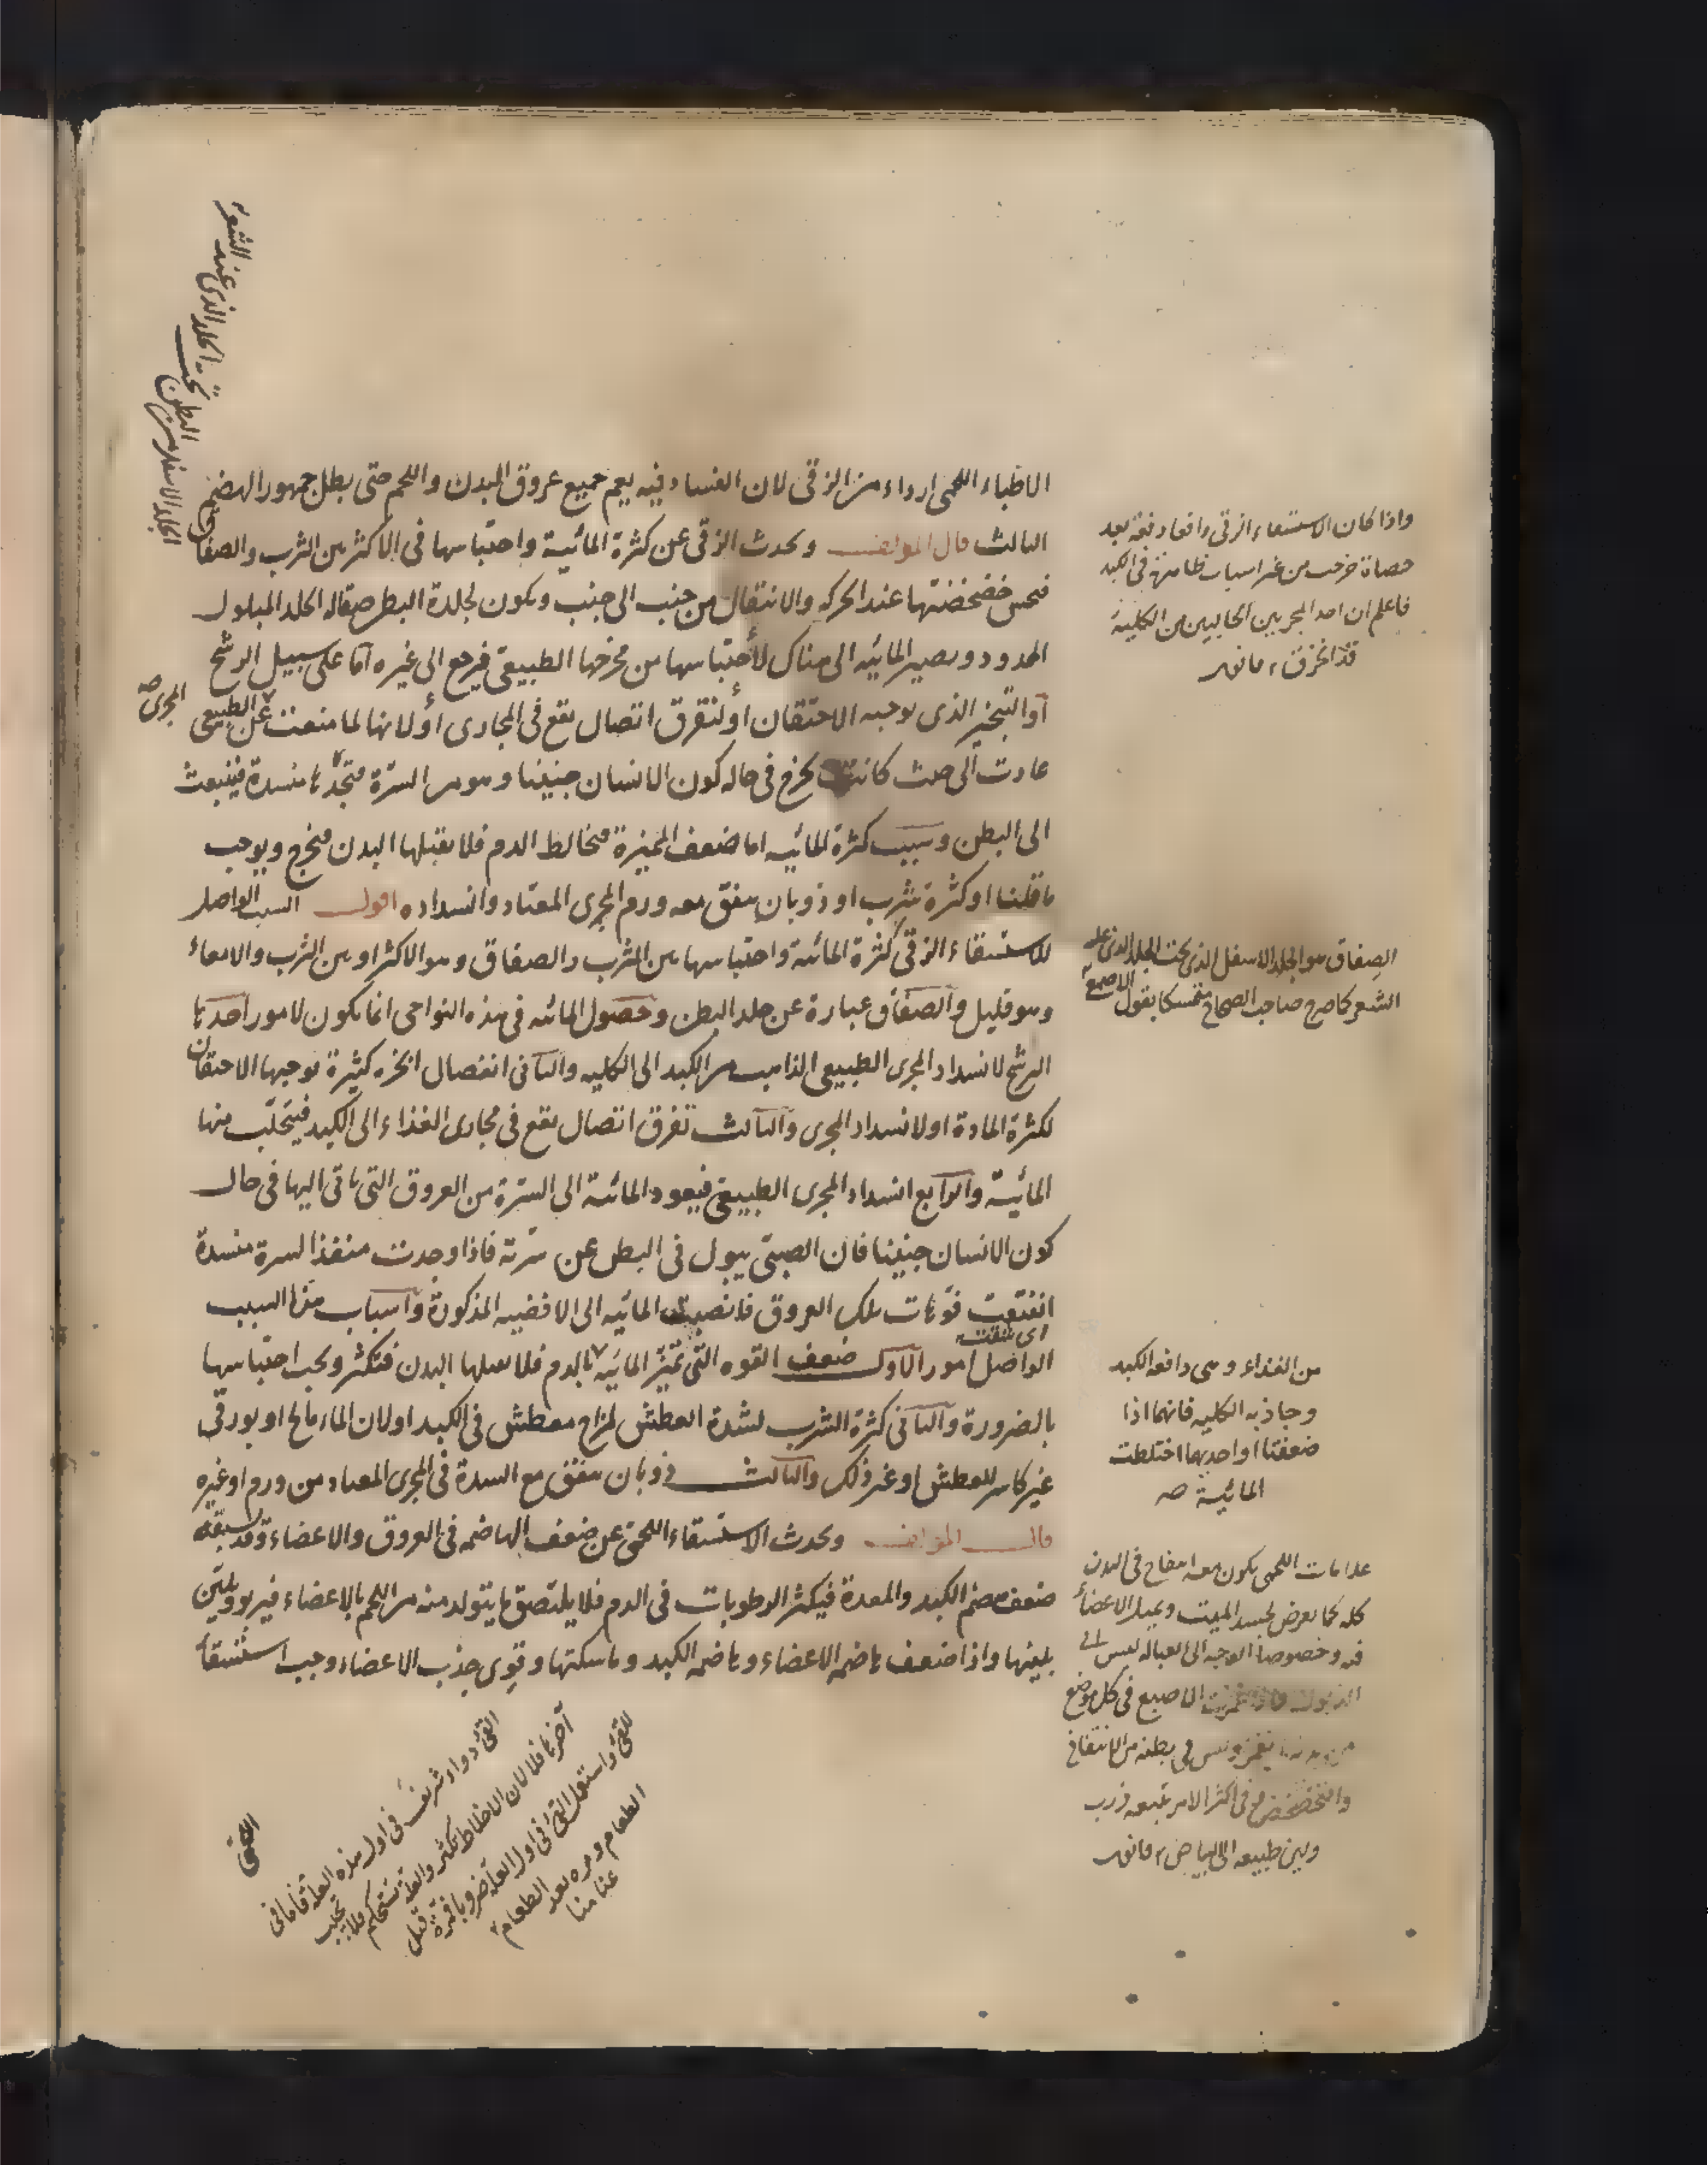 الاطباء اللحمى ارداء من الزقى لان الفساد فيه يعم جميع عروق البدن واللحم حتى بطل جمهور الهضم
الثالث قال المولف ويحدث الزقى عن كثرة المائية واحتباسها فى الاكثر بين الثرب والصفاق
فيحس خضخضتها عند الحركه والانتقال من جنب الى جنب ويكون لجلدة البطن صقاله الجلد المبلول
الممدود ويصير المائيه الى هناك لأحتباسها من مخرجها الطبيعى فيرجع الى غيره اما على سبيل الرشح
او التبخير الذى يوجبه الاحتقان او لتفرق اتصال يقع فى المجارى أو لانها لما منعت عن الطبيعى
المجرى صح
عادت الى حيث كانت يخرج فى حاله كون الانسان جنينا وهو من السرة فتجدها منسدة فينبعث
الى البطن وسبب كثرة المائيه اما ضعف المميزة فيخالط الدم فلا يقبلها البدن فيخرج ويوجب
ما قلنا او كثرة شرب او ذوبان يتفق معه ورم المجرى المعتاد وانسداده اقول السبب الواصل
للاستسقاء الزقى كثرة المائية واحتباسها بين الثرب والصفاق وهو الاكثر او بين الثرب والامعاء
وهو قليل والصفاق عبارة عن جلد البطن وحصول المائيه فى هذه النواحى انما يكون لامور احدها
الرشح لانسداد المجرى الطبيعى الذاهب من الكبد الى الكليه والثانى انفصال ابخره كثيرة يوجبها الاحتقان
لكثرة المادة او لانسداد المجرى والثالث تفرق اتصال يقع فى مجارى الغذاء الى الكبد فيتحلب منها
المائية والرابع انسداد المجرى الطبيعى فيعود المائية الى السرة من العروق التى تاتى اليها فى حال
كون الانسان جنينا فان الصبى يبول فى البطن عن سرته فاذا وجدت منفذ السرة منسدة
انفتحت فوهات تلك العروق فانصبت المائيه الى الافضيه المذكورة واسباب هذا السبب
اى شقت
الواصل امور الاول ضعف القوه التى تميز المائيه بالدم فلا يقبلها البدن فتكثر ويجب احتباسها
بالضرورة والثانى كثرة الشرب لشدة العطش لمزاج معطش فى الكبد او لان الماء مالح او بورقى
غير كاسر للعطش او غير ذلك والثالث ذوبان يتفق مع السدة فى المجرى المعتاد من ورم او غيره
قال المولف ويحدث الاستسقاء اللحمى عن ضعف الهاضمه فى العروق والاعضاء وقد يسبقه
ضعف هضم الكبد والمعدة فيكثر الرطوبات فى الدم فلا يلتصق ما يتولد منه من اللحم بالاعضاء فيربو ويلين
بلينها واذا ضعف هاضمه الاعضاء وهاضمه الكبد وماسكتها وقوى جذب الاعضاء وجب استسقاء
الجلد الاسفل من
البطن تحت الجلد الذى عند الشعر
واذا كان الاستسقاء الزقى واقعا دفعة بعد
حصاة خرجت من غير اسباب ظاهرة فى الكبد
فاعلم ان احد المجريين الجالبين من الكلية
قد انخرق ، قانون
الصفاق هو الجلد الاسفل الذى تحت الجلد الذى عليه
الشعر كما صرح صاحب الصحاح متمسكا بقول الاصمعى
من الغذاء وهى دافعه الكبد
وجاذبه الكليه فانهما اذا
ضعفتا او احديهما اختلطت
المائية صح
علامات اللحمى يكون معه انتفاخ فى البدن
كله كما يعرض لجسد الميت ويميل الاعضاء
فيه وخصوصا الوجه الى العباله ليس الى
الذبول فاذا غمزت الاصبع فى كل موضع
من بدنه ينغمز وليس فى بطنه من الانتفاخ
والتخضخض فى اكثر الامر يتبعه ذرب
ولين طبيعه الى البياض ، قانون
القئ دواء شريف فى اول هذه العلة فاما فى
آخرها فلا لان الاخلاط تكثر والعلة تستحكم فلا يجب
للقئ واستعمل القئ فى اول العلة ضروبا فمرة قبل
الطعام ومره بعد الطعام
اللحمى